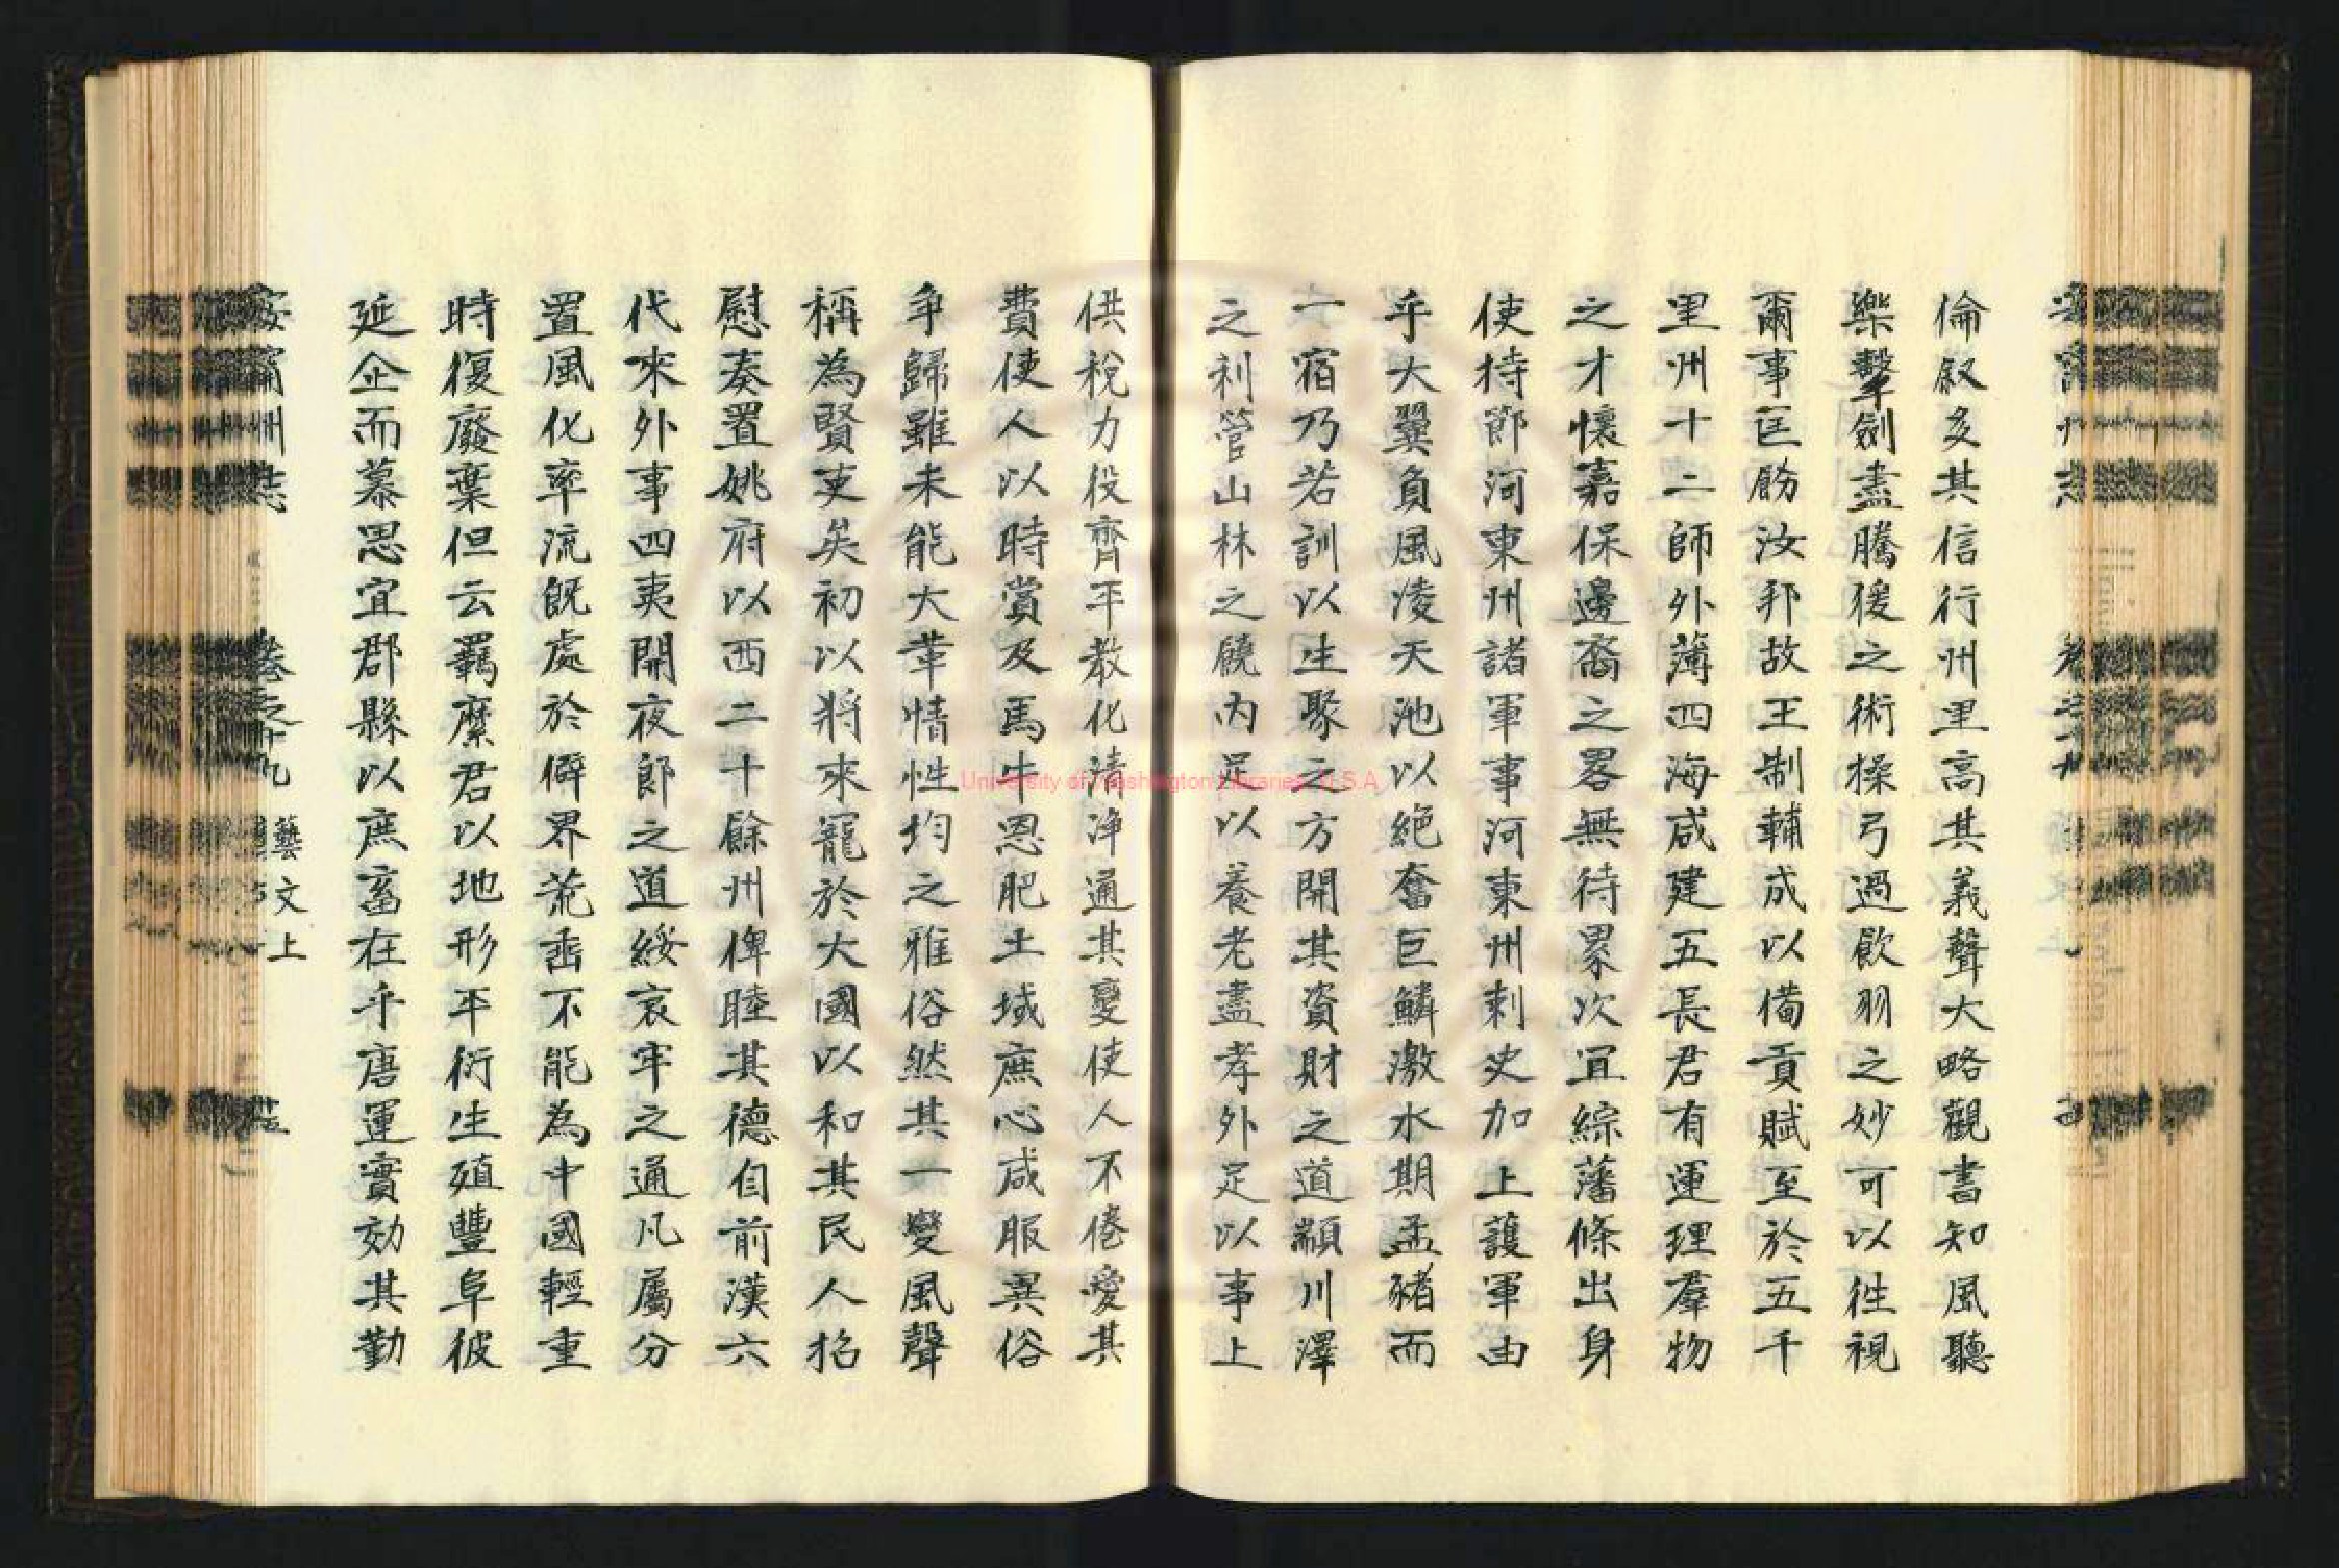 倫叙多其信行州里高其義聲大略觀書知風聽
樂擊劍盡騰猨之術操弓過飲羽之妙可以徃視
爾事匡飭汝邦故王制輔成以備貢賦至於五千
里州十二師外薄四海咸建五長君有運理羣物
之才懷嘉保邊裔之畧無待累次宜綜藩條出身
使持節河東州諸軍事河東州刺史加上護軍由
乎大翼負風淩天池以絶奮巨鱗激水期孟豬而
一宿乃若訓以生聚之方開其資財之道顓川澤
之利管山林之饒内足以養老盡孝外足以事上
供稅力役齊平教化清淨通其變使人不倦愛其
費使人以時賞及馬牛恩肥土域庶心咸服異俗
争歸雖未能大革情性均之雅俗然其一變風聲
稱為賢吏矣初以將來寵於大國以和其民人招
慰奏置姚府以西二十餘州俾睦其德自前漢六
代來外事四夷開夜郎之道綏哀牢之通凡屬分
置風化率流既處於僻界荒畨不能為中國輕重
時復廢棄但云羈縻君以地形平衍生殖豐阜彼
延企而慕思宜郡縣以庶畜在乎唐運實効其勤
安甯州志 卷之十九 藝文上
University of Washington Libraries, U.S.A